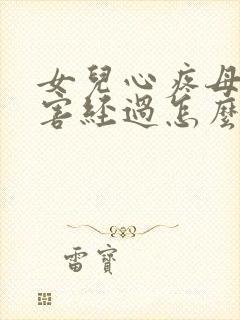 女兒心疼母
害經過怎麼
雷寶